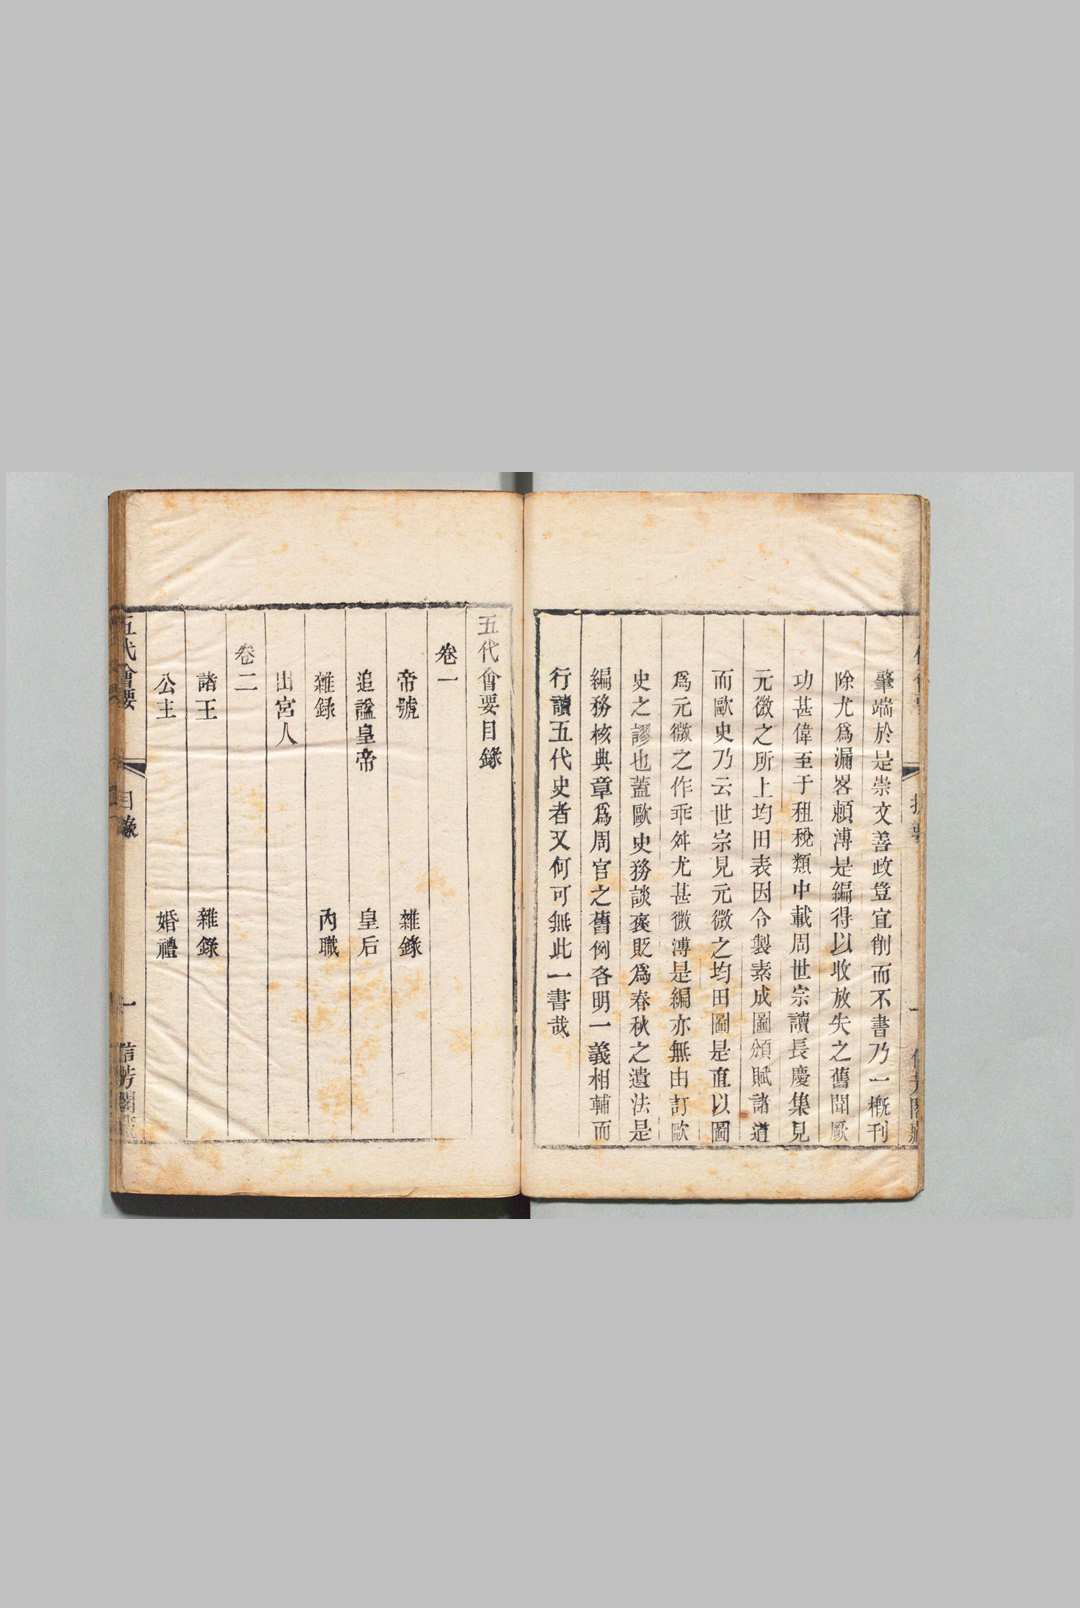 肇端於是崇文善政豈宜削而不書乃一槪刊
除尤爲漏畧賴溥是編得以收放失之舊聞厥
功甚偉至于租稅類中載周世宗讀長慶集見
元微之所上均田表因令製素成圖頒賦諸道
而歐史乃云世宗見元微之均田圖是直以圖
爲元微之作乖舛尤甚微溥是編亦無由訂歐
史之謬也蓋歐史務談褒貶爲春秋之遺法是
編務核典章爲周官之舊例各明一義相輔而
行讀五代史者又何可無此一書哉
五代會要目錄
卷一
帝號 雜錄
追諡皇帝 皇后
雜錄 內職
出宮人
卷二
諸王 雜錄
公主 婚禮
五代會要 目錄 一 信芳閣